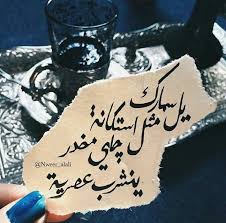 يل سمارك
مثل استكانة
چاي مخدر
ينشرب عصرية
@Nweer_alali